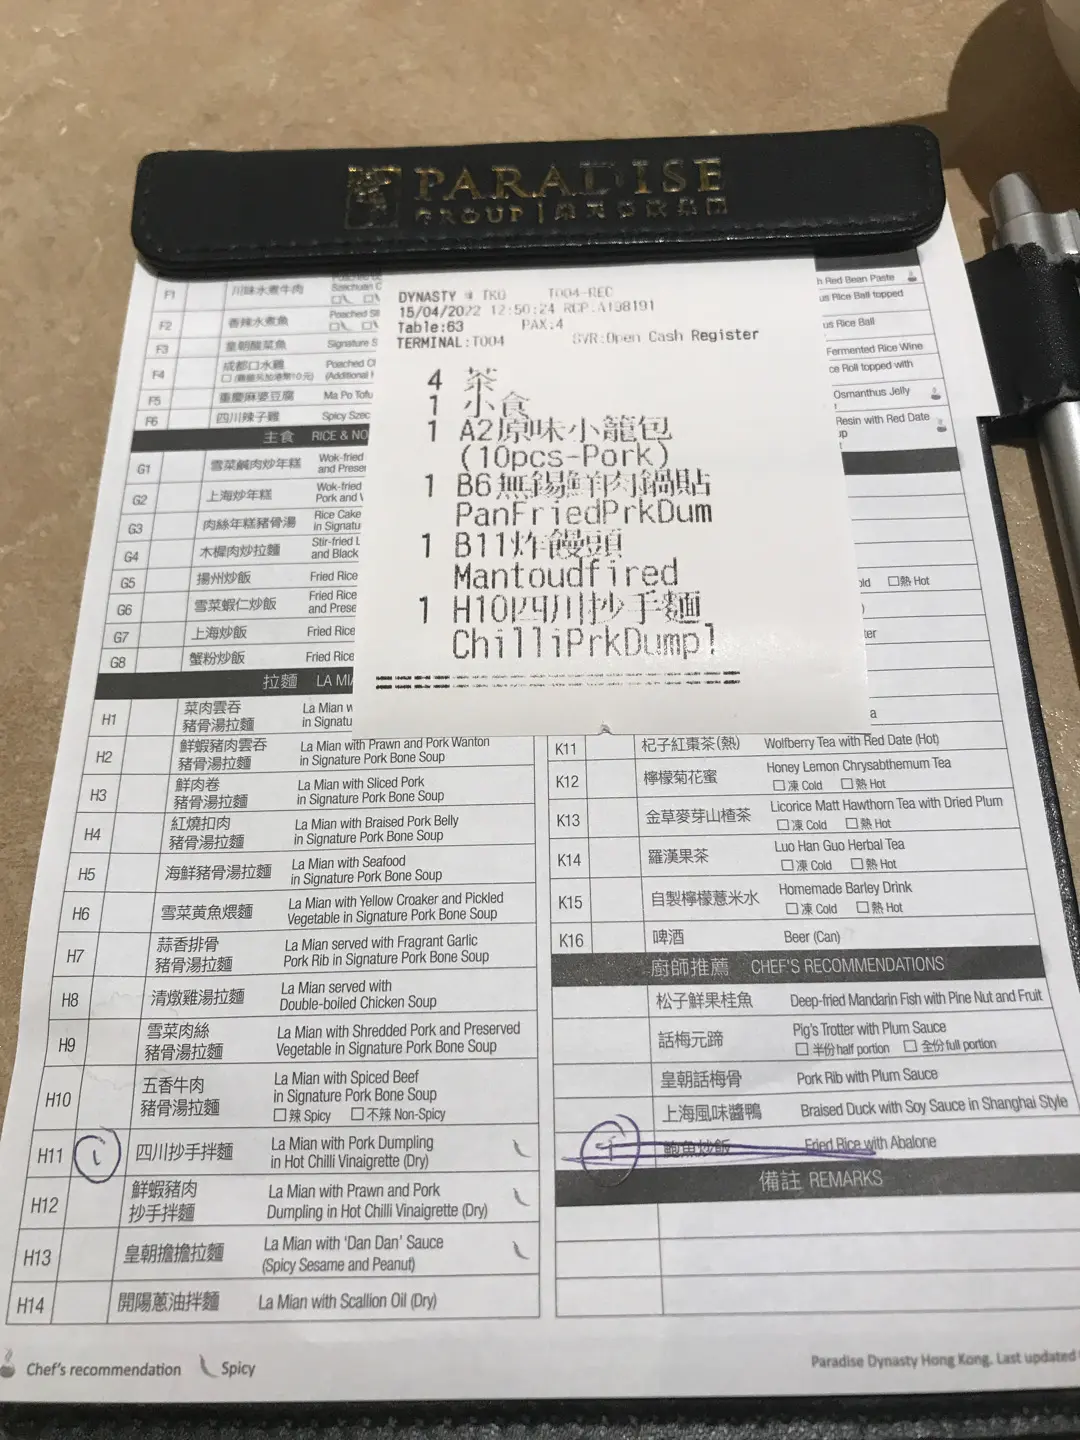 PARADISE
GROUP
F1 川味水煮牛肉
F2 香辣水煮魚
F3 皇朝酸菜魚 Signature S
F4 成都口水雞 Poached Ch
(Additional
F5 重慶麻婆豆腐 Ma Po Tofu
F6 四川辣子雞 Spicy Szec
主食 RICE & NO
G1 雪菜鹹肉炒年糕 Wok-fried
and Prese
G2 上海炒年糕 Wok-fried
Pork and
G3 肉絲年糕豬骨湯 Rice Cake
in Signatu
G4 木樨肉炒拉麵 Stir-fried L
and Black
G5 揚州炒飯 Fried Rice
G6 雪菜蝦仁炒飯 Fried Rice
and Prese
G7 上海炒飯 Fried Rice
G8 蟹粉炒飯 Fried Rice
拉麵 LA MI
DYNASTY @ TKO T004-REC
15/04/2022 12:50:24 RCP:A198191
Table:63 PAX:4
TERMINAL:T004 SVR:Open Cash Register
4 茶
1 小食
1 A2原味小籠包
(10pcs-Pork)
1 B6無錫鮮肉鍋貼
PanFriedPrkDum
1 B11炸饅頭
Mantoudfired
1 H10四川抄手麵
ChilliPrkDumpl
h Red Bean Paste
us Rice Ball topped
us Rice Ball
Fermented Rice Wine
ce Roll topped with
Osmanthus Jelly
Resin with Red Date
up
old 熱 Hot
ter
a
H1 菜肉雲吞 La Mian w
豬骨湯拉麵 in Signatu
H2 鮮蝦豬肉雲吞 La Mian with Prawn and Pork Wanton
豬骨湯拉麵 in Signature Pork Bone Soup
H3 鮮肉卷 La Mian with Sliced Pork
豬骨湯拉麵 in Signature Pork Bone Soup
H4 紅燒扣肉 La Mian with Braised Pork Belly
豬骨湯拉麵 in Signature Pork Bone Soup
H5 海鮮豬骨湯拉麵 La Mian with Seafood
in Signature Pork Bone Soup
H6 雪菜黄魚煨麵 La Mian with Yellow Croaker and Pickled
Vegetable in Signature Pork Bone Soup
H7 蒜香排骨 La Mian served with Fragrant Garlic
豬骨湯拉麵 Pork Rib in Signature Pork Bone Soup
H8 清燉雞湯拉麵 La Mian served with
Double-boiled Chicken Soup
H9 雪菜肉絲 La Mian with Shredded Pork and Preserved
豬骨湯拉麵 Vegetable in Signature Pork Bone Soup
H10 五香牛肉 La Mian with Spiced Beef
豬骨湯拉麵 in Signature Pork Bone Soup
辣 Spicy 不辣 Non-Spicy
H11 1 四川抄手拌麵 La Mian with Pork Dumpling
in Hot Chilli Vinaigrette (Dry)
H12 鮮蝦豬肉 La Mian with Prawn and Pork
抄手拌麵 Dumpling in Hot Chilli Vinaigrette (Dry)
H13 皇朝擔擔拉麵 La Mian with ‘Dan Dan’ Sauce
(Spicy Sesame and Peanut)
H14 開陽蔥油拌麵 La Mian with Scallion Oil (Dry)
K11 杞子紅棗茶(熱) Wolfberry Tea with Red Date (Hot)
K12 檸檬菊花蜜 Honey Lemon Chrysabthemum Tea
凍 Cold 熱 Hot
K13 金草麥芽山楂茶 Licorice Matt Hawthorn Tea with Dried Plum
凍 Cold 熱 Hot
K14 羅漢果茶 Luo Han Guo Herbal Tea
凍 Cold 熱 Hot
K15 自製檸檬薏米水 Homemade Barley Drink
凍 Cold 熱 Hot
K16 啤酒 Beer (Can)
廚師推薦 CHEF'S RECOMMENDATIONS
松子鮮果桂魚 Deep-fried Mandarin Fish with Pine Nut and Fruit
話梅元蹄 Pig's Trotter with Plum Sauce
半份half portion 全份full portion
皇朝話梅骨 Pork Rib with Plum Sauce
上海風味醬鴨 Braised Duck with Soy Sauce in Shanghai Style
鮑魚炒飯 Fried Rice with Abalone
備註 REMARKS
Chef's recommendation Spicy
Paradise Dynasty Hong Kong. Last updated